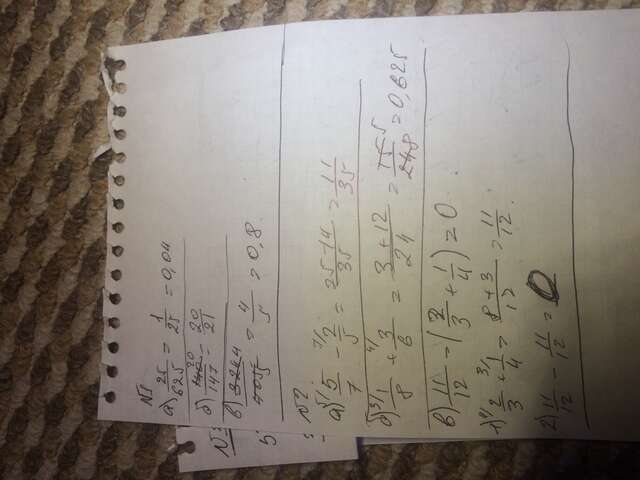 №1
а) 25/625 = 1/25 = 0,04
б) 140 20/147 = 20/21
в) 3244/4055 = 4/5 = 0,8
№2.
а) 5/ 5/7 - 7/ 2/5 = 25-14/35 = 11/35
б) 3/ 1/8 + 4/ 3/6 = 3+12/24 = 15 5/24 8 = 0,625
в) 11/12 - (2/3 + 1/4) = 0
1) 4/ 2/3 + 3/ 1/4 = 8+3/12 = 11/12.
2) 11/12 - 11/12 = 0